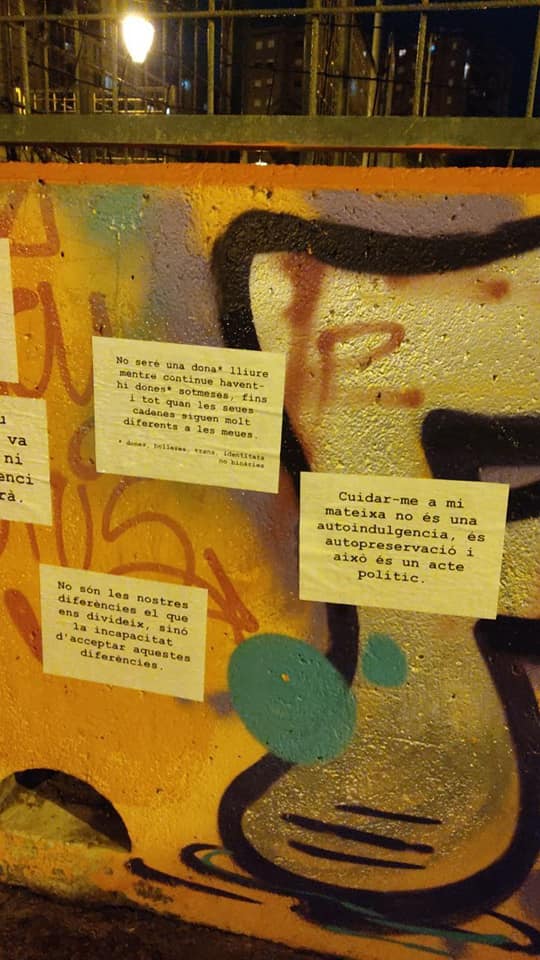 u
va
ni
enci
rà.
No seré una dona* lliure
mentre continue havent-
hi dones* sotmeses, fins
i tot quan les seues
cadenes siguen molt
diferents a les meues.
* dones, bolleres, trans, identitats
no binàries
Cuidar-me a mi
mateixa no és una
autoindulgencia, és
autopreservació i
això és un acte
polític.
No són les nostres
diferències el que
ens divideix, sinó
la incapacitat
d'acceptar aquestes
diferències.